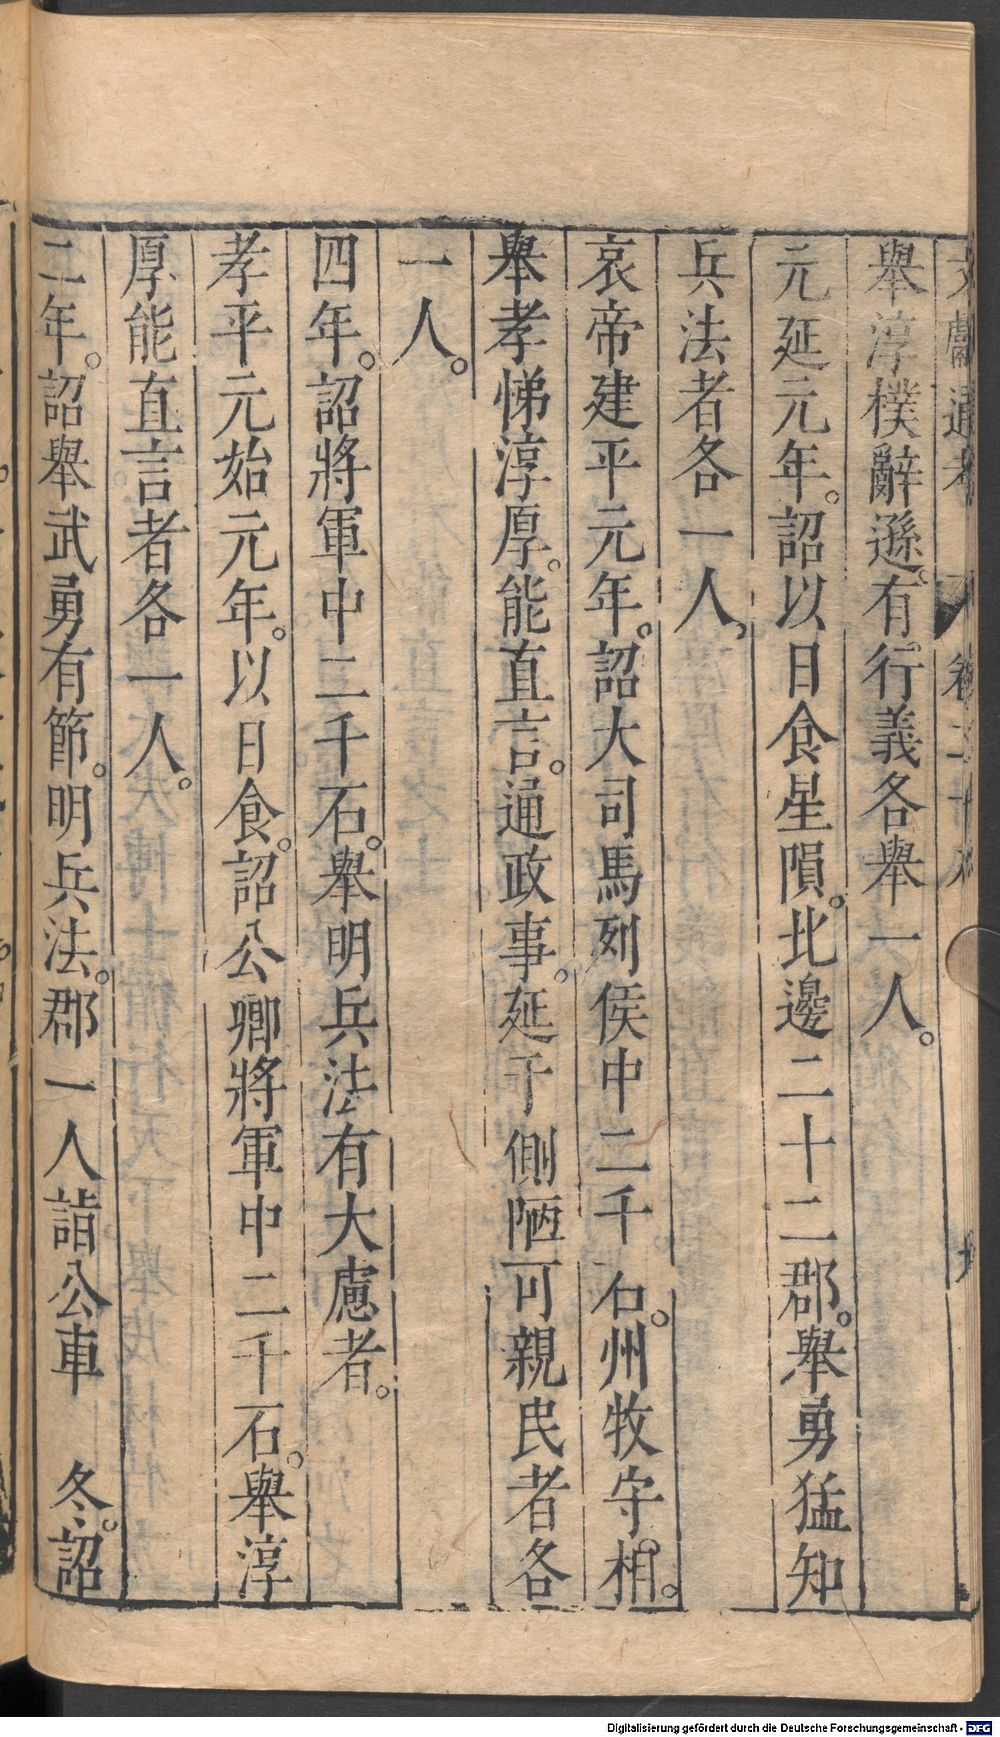 文獻通考 卷二十八
舉淳樸辭遜。有。行義各舉一人。
元延元年。詔以日食星隕。北邊二十二郡。舉勇猛知
兵法者各一人。
哀帝建平元年。詔大司馬列侯中二千石。州牧守。相。
舉孝悌淳厚。能直言。通政事。延于側陋可親民者各
一人。
四年。詔將軍中二千石。舉明兵法有大慮者。
孝平元始元年。以日食。詔公卿將軍中二千石。舉淳
厚能直言者各一人。
二年。詔舉武勇有節。明兵法。郡一人詣公車 冬。詔
Digitalisierung gefördert durch die Deutsche Forschungsgemeinschaft - DFG